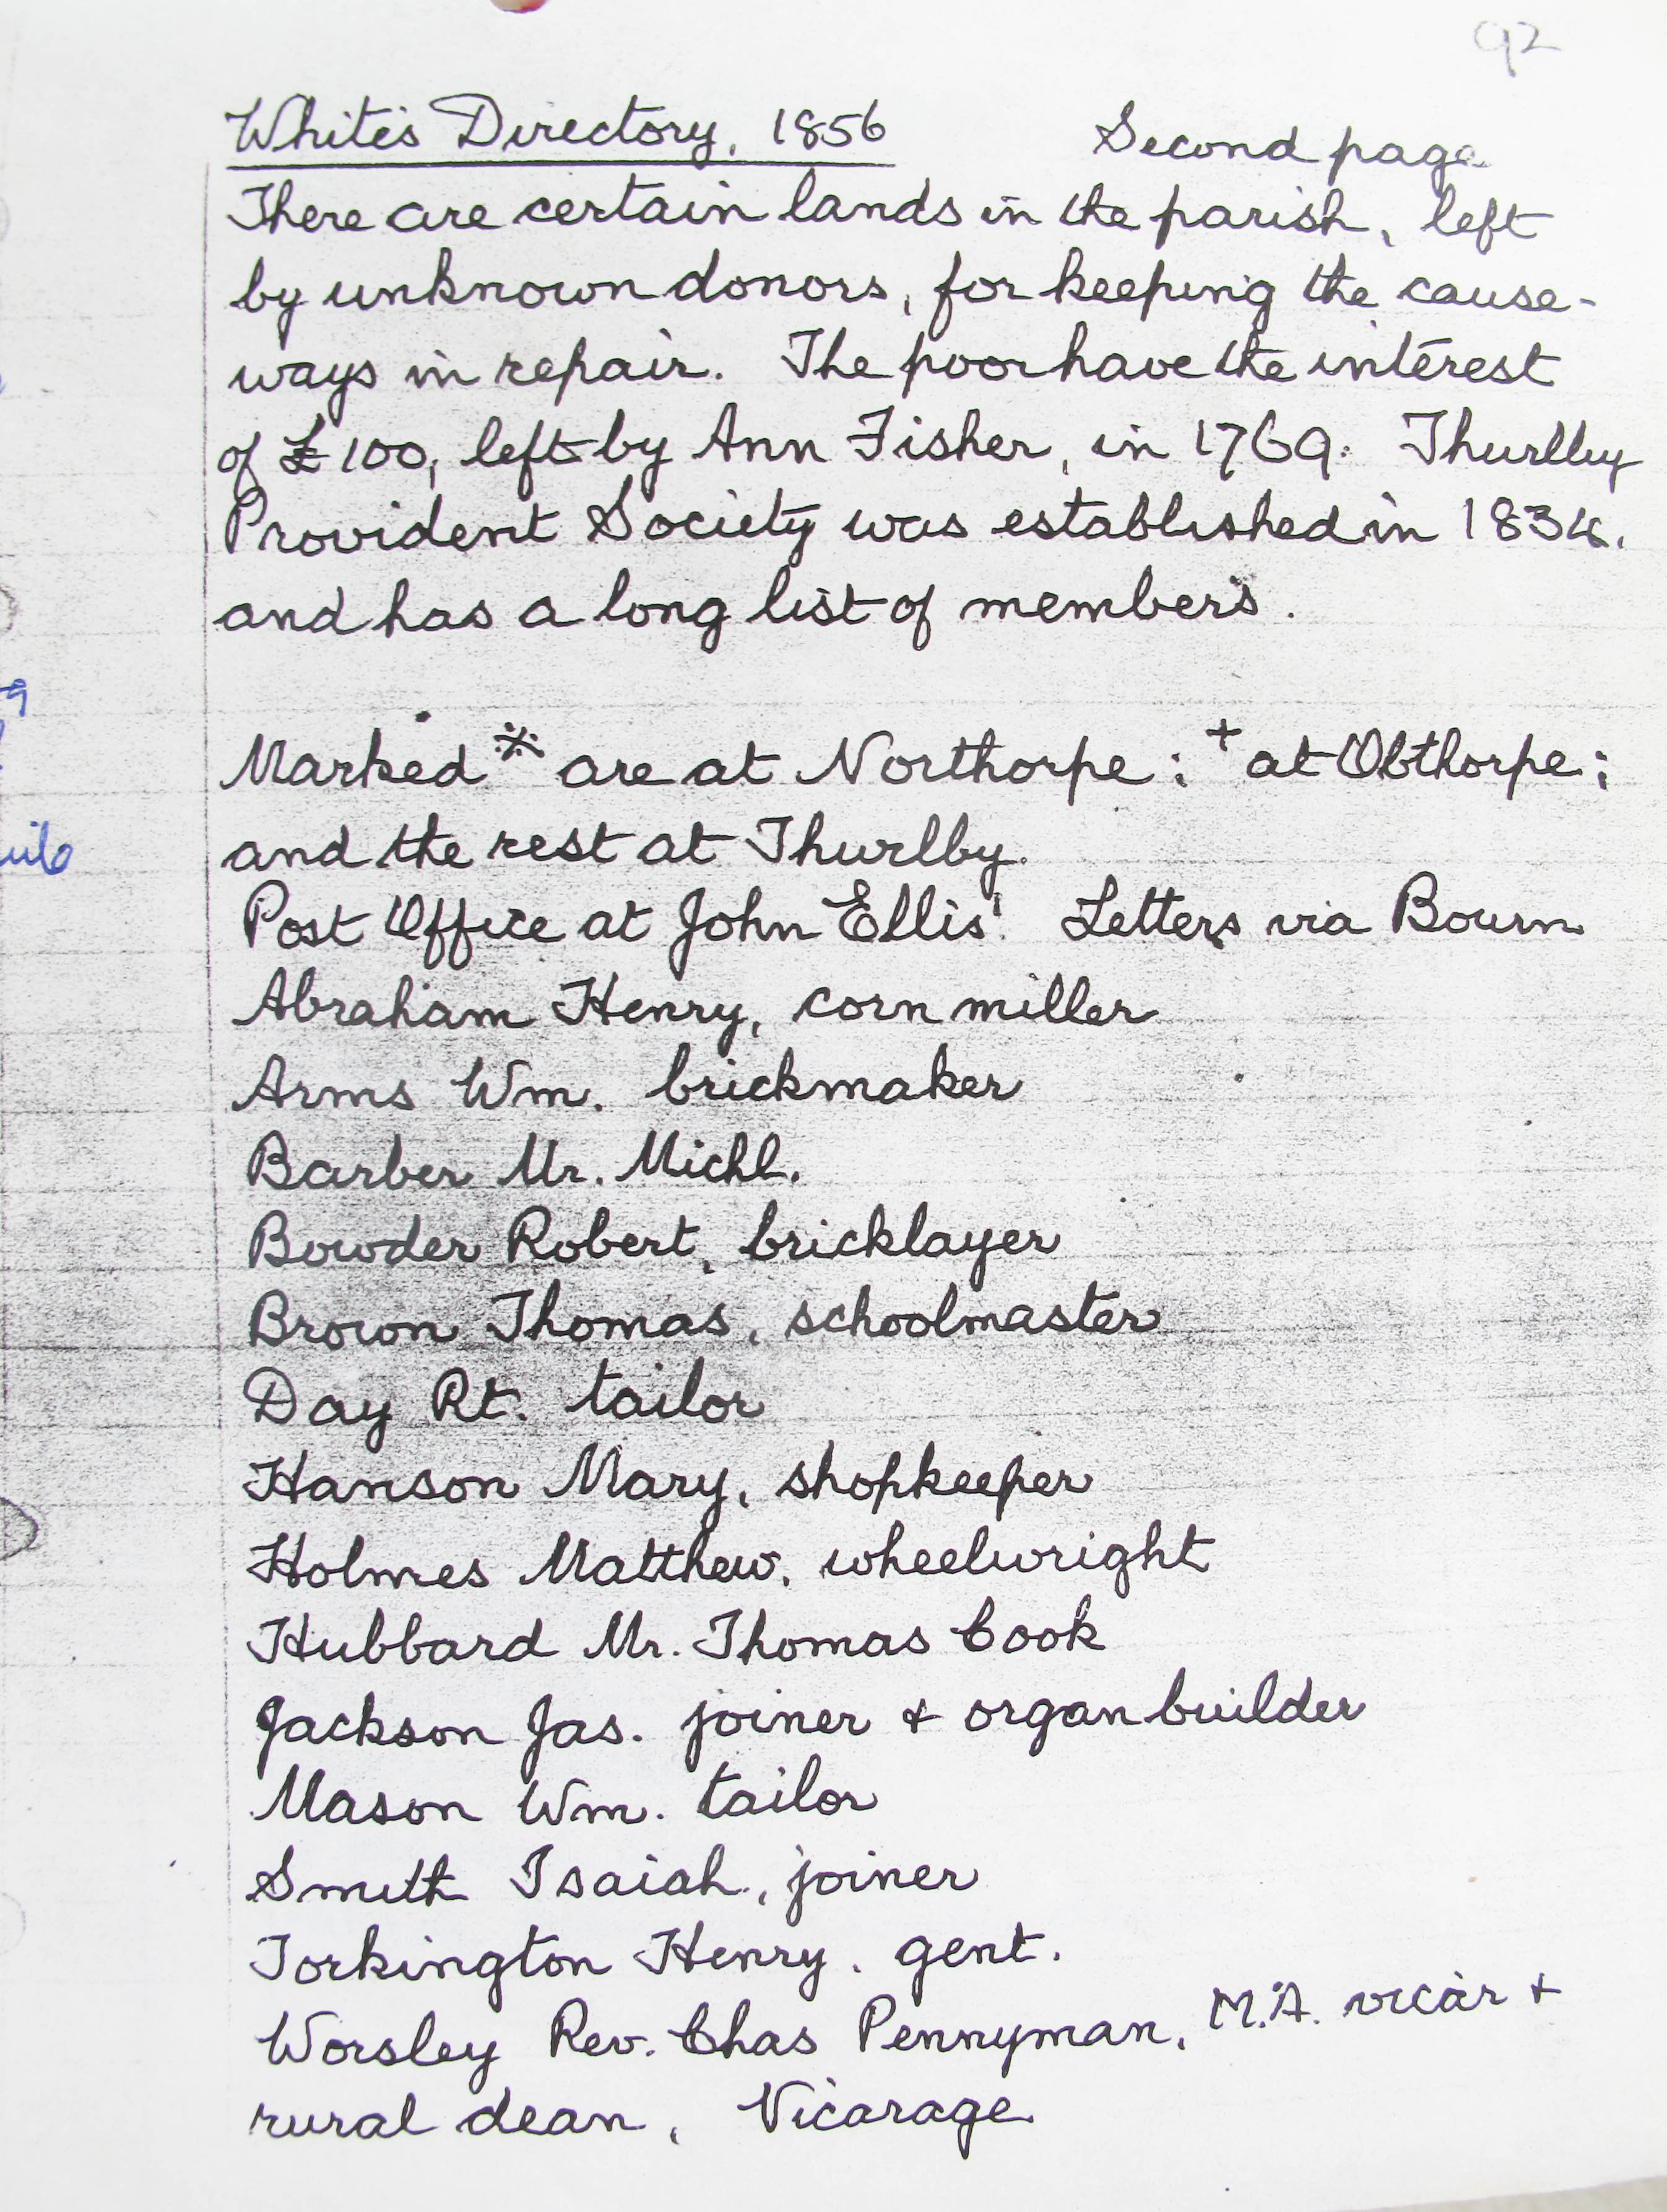 92
White's Directory, 1856 Second page
There are certain lands in the parish, left
by unknown donors, for keeping the cause-
ways in repair. The poor have the interest
of £100, left by Ann Fisher, in 1769. Thurlby
Provident Society was established in 1834,
and has a long list of members.
Marked ※ are at Northorpe; + at Obthorpe;
and the rest at Thurlby.
Post Office at John Ellis'. Letters via Bourn
Abraham Henry, corn miller
Arms Wm. brickmaker
Barber Mr. Michl.
Bowder Robert, bricklayer
Brown Thomas, schoolmaster
Day Rt. tailor
Hanson Mary, shopkeeper
Holmes Matthew, wheelwright
Hubbard Mr. Thomas Cook
Jackson Jas. joiner & organ builder
Mason Wm. tailor
Smith Isaiah, joiner
Torkington Henry, gent.
Worsley Rev. Chas Pennyman, M.A. vicar &
rural dean, Vicarage